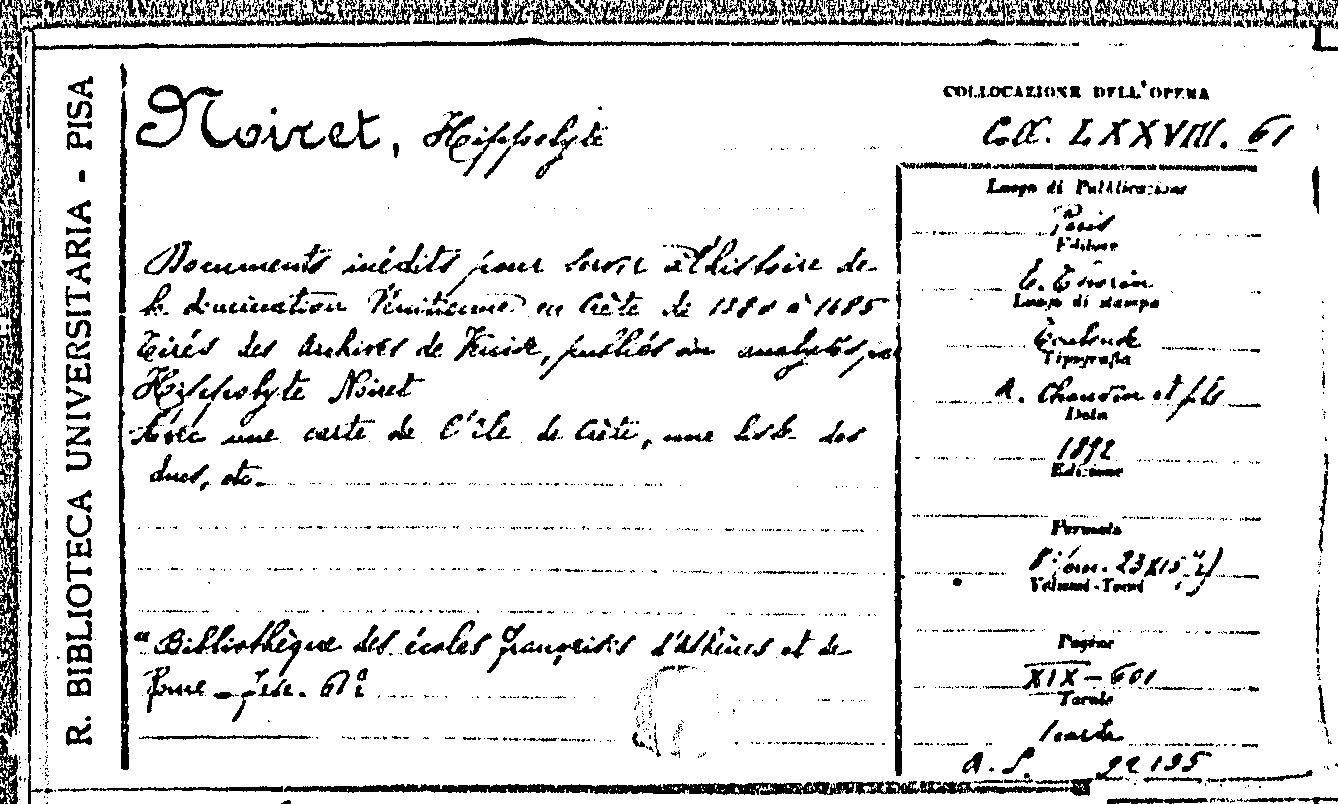 R. BIBLIOTECA UNIVERSITARIA - PISA
Noiret, Hippolyte
Documents inédits pour servir à l'histoire de
la domination Vénitienne en Crète de 1380 à 1485
Tirés des Archives de Venise, publiés ou analysés par
Hippolyte Noiret
Avec une carte de l'île de Crète, une liste des
ducs, etc.
"Bibliothèque des écoles françaises d'Athènes et de
Rome - Fasc. 61º
COLLOCAZIONE DELL'OPERA
Coll. LXXVIII. 61
Luogo di Pubblicazione
Paris
Editore
E. Thorin
Luogo di stampa
Toulouse
Tipografia
A. Chauvin et fils
Data
1892
Edizione
Formato
8º (cm. 23X15 ½)
Volumi-Tomi
Pagine
XIX - 601
Tavole
1 carte
A. S. 22195